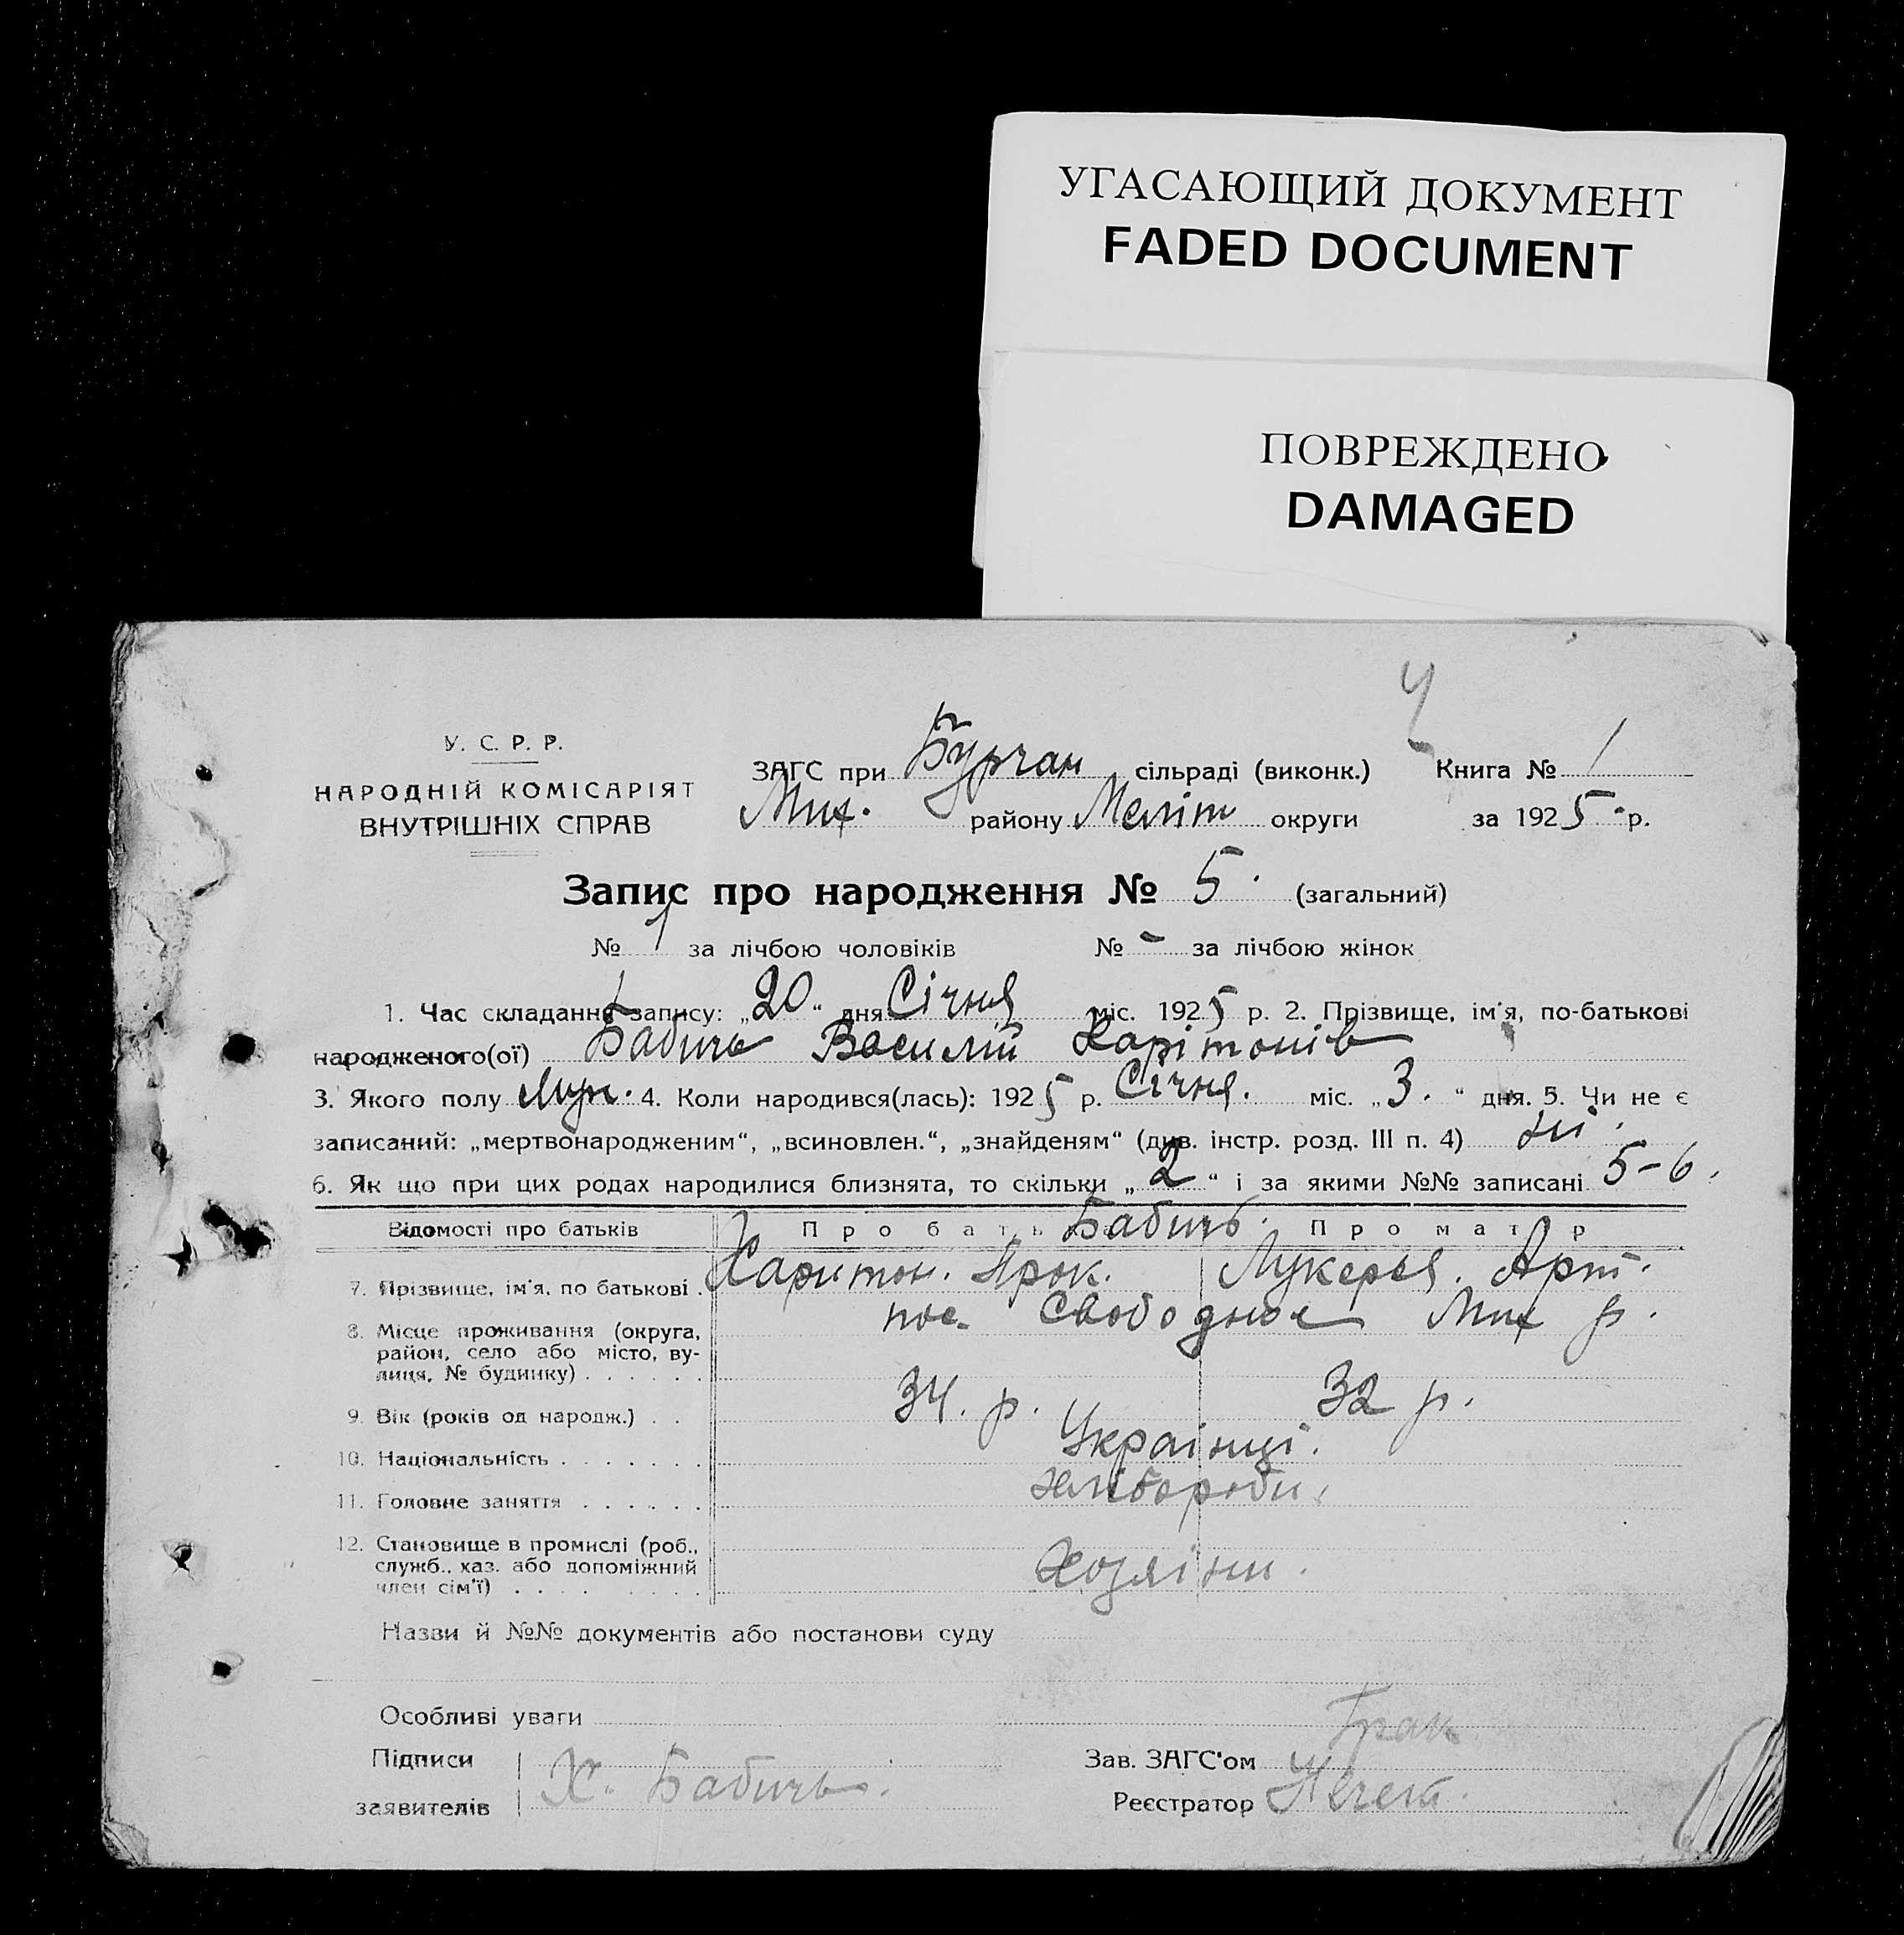 УГАСАЮЩИЙ ДОКУМЕНТ
FADED DOCUMENT
ПОВРЕЖДЕНО
DAMAGED
Ч
У. С. Р. Р.
НАРОДНІЙ КОМІСАРІЯТ
ВНУТРІШНІХ СПРАВ
ЗАГС при Бурчан сільраді (виконк.) Книга № 1
Мих. району Меліт округи за 1925 р.
Запис про народження № 5. (загальний)
№ 1 за лічбою чоловіків № - за лічбою жінок
1. Час складання запису: „20“ дня Січня міс. 1925 р. 2. Прізвище, ім'я, по-батькові
народженого(ої) Бабичь Василій Харітонів
3. Якого полу Муж. 4. Коли народився(лась): 1925 р. Січня. міс. „3.“ дня. 5. Чи не є
записаний: „мертвонародженим“, „всиновлен.“, „знайденям“ (див. інстр. розд. III п. 4) ні.
6. Як що при цих родах народилися близнята, то скільки „2“ і за якими №№ записані 5-6.
Відомості про батьків Про батька Бабичь. Про матір
7. Прізвище, ім'я, по батькові . Харитон. Прок. Лукерья. Арт.
8. Місце проживання (округа, пос. Свободное Мих р.
район, село або місто, ву-
лиця, № будинку) . . . . . .
9. Вік (років од народж.) . . 34. р. 32 р.
10. Національність . . . . . . . Українці.
11. Головне заняття . . . . . . хлібороби.
12. Становище в промислі (роб.,
служб., хаз. або допоміжний Хозяіни.
член сім'ї) . . . . . . . . .
Назви й №№ документів або постанови суду
Особливі уваги
Підписи
заявителів Х. Бабичь.
Зав. ЗАГС'ом
Реєстратор